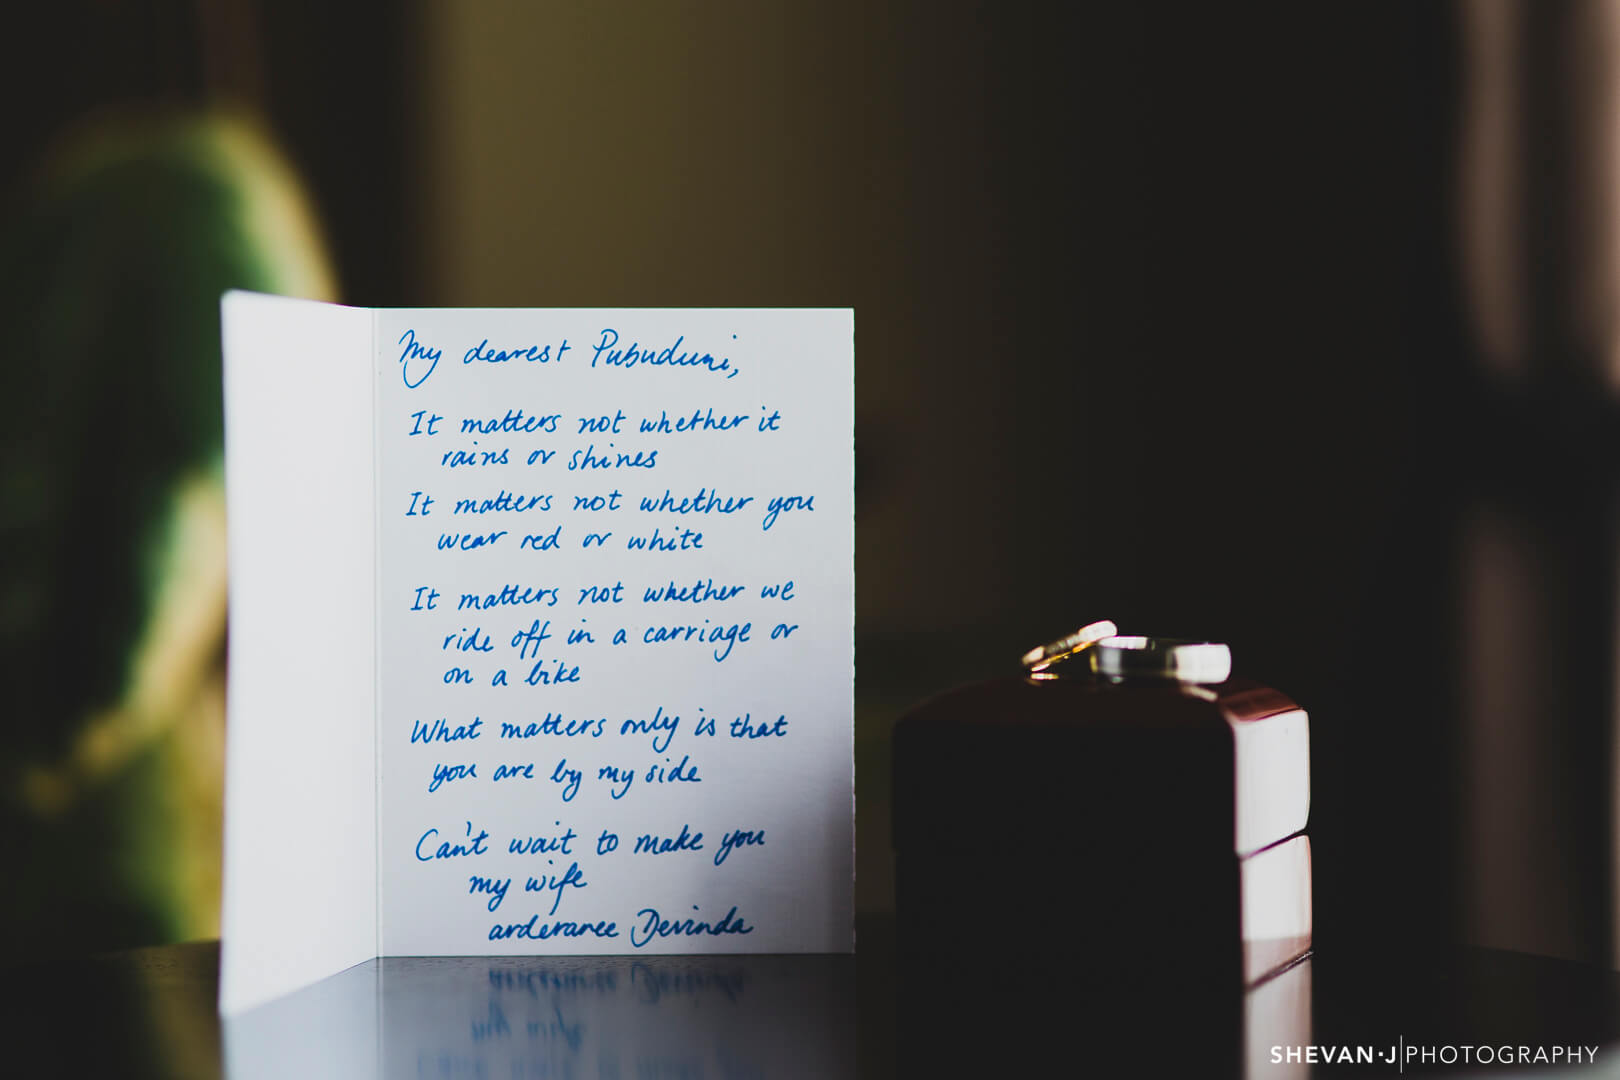 My dearest Pubuduni,
It matters not whether it
rains or shines
It matters not whether you
wear red or white
It matters not whether we
ride off in a carriage or
on a bike
What matters only is that
you are by my side
Can't wait to make you
my wife
arderanee Devinda
SHEVAN·J|PHOTOGRAPHY